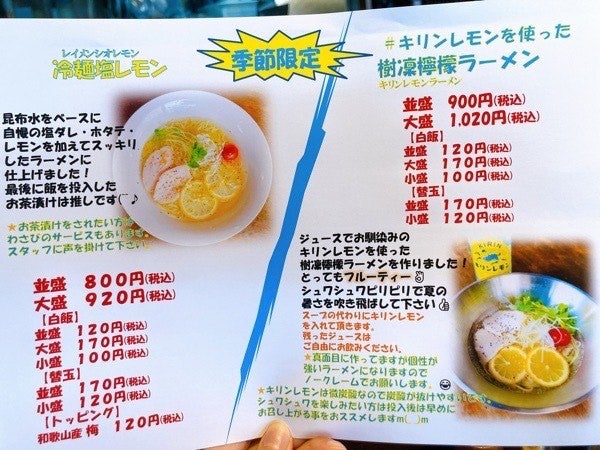 レイメンシオレモン
冷麺塩レモン
季節限定
昆布水をベースに
自慢の塩ダレ・ホタテ・
レモンを加えてスッキリ
したラーメンに
仕上げました!
最後に飯を投入した
お茶漬けは推しです(¨)♪
★お茶漬けをされたい方は
わさびのサービスもあります。
スタッフに声を掛けて下さい。
並盛 800円(税込)
大盛 920円(税込)
【白飯】
並盛 120円(税込)
大盛 170円(税込)
小盛 100円(税込)
【替玉】
並盛 170円(税込)
小盛 120円(税込)
【トッピング】
和歌山産 梅 120円(税込)
#キリンレモンを使った
樹凜檸檬ラーメン
キリンレモンラーメン
並盛 900円(税込)
大盛 1,020円(税込)
【白飯】
並盛 120円(税込)
大盛 170円(税込)
小盛 100円(税込)
【替玉】
並盛 170円(税込)
小盛 120円(税込)
ジュースでお馴染みの
キリンレモンを使った
樹凜檸檬ラーメンを作りました!
とってもフルーティー
シュワシュワピリピリで夏の
暑さを吹き飛ばして下さい
スープの代わりにキリンレモン
を入れて頂きます。
残ったジュースは
ご自由にお飲みください。
★真面目に作ってますが個性が
強いラーメンになりますので
ノークレームでお願いします。
★キリンレモンは微炭酸なので炭酸が抜けやすいです。
シュワシュワを楽しみたい方は投入後は早めに
お召し上がる事をおススメしますm(__)m
KIRIN
キリンレモン